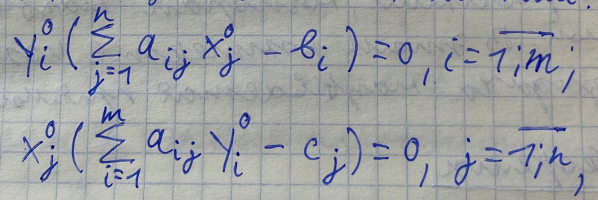 y_i^0 ( \sum_{j=1}^{n} a_{ij} x_j^0 - b_i ) = 0, i = \overline{1;m};
x_j^0 ( \sum_{i=1}^{m} a_{ij} y_i^0 - c_j ) = 0, j = \overline{1;n},